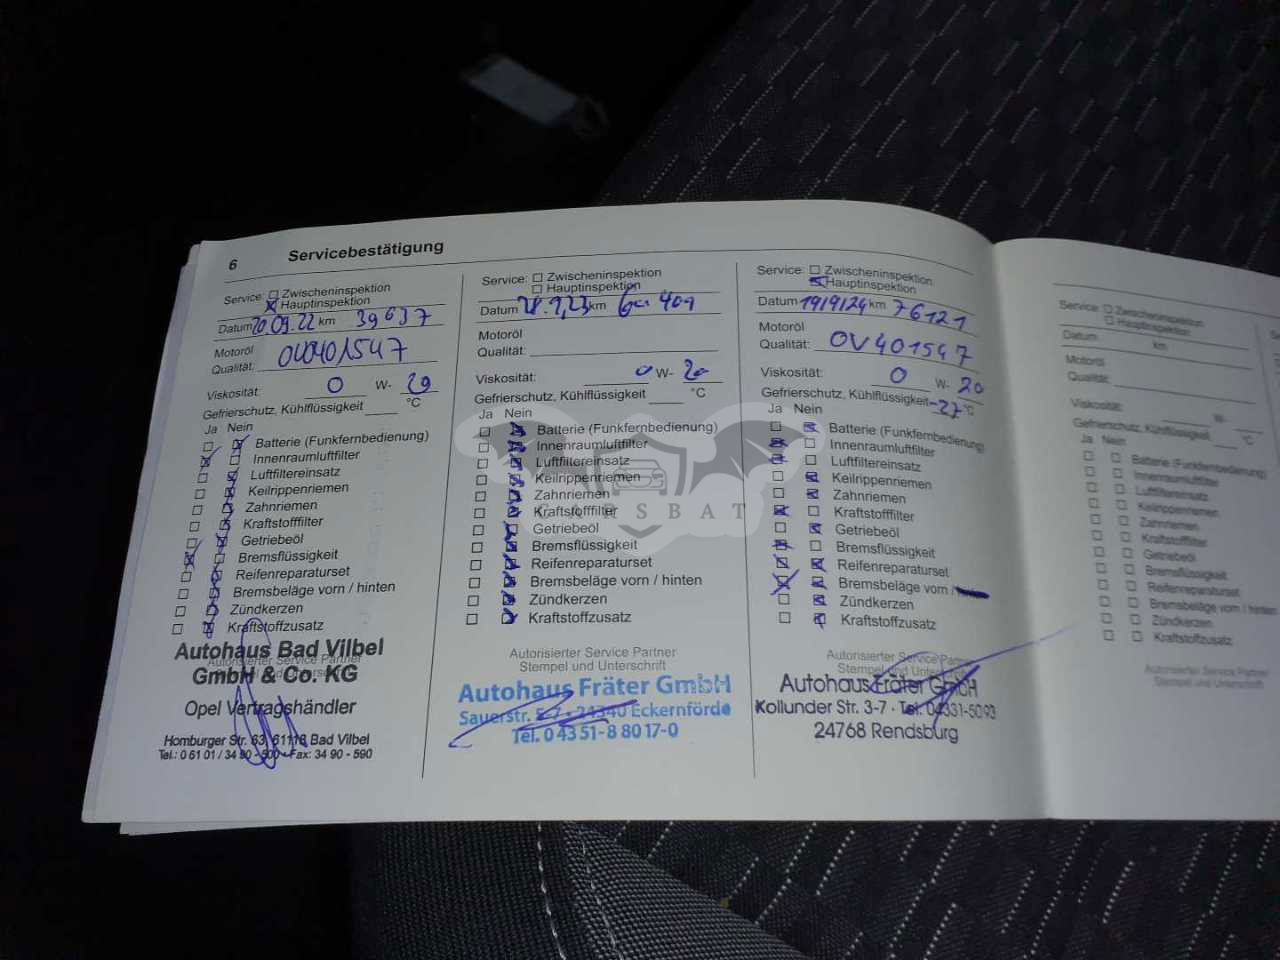 6 Servicebestätigung
Service: Zwischeninspektion
Hauptinspektion
Datum 20.09.22 km 39637
Motoröl
Qualität: OV0401547
Viskosität: 0 W- 20
Gefrierschutz, Kühlflüssigkeit °C
Ja Nein
Batterie (Funkfernbedienung)
Innenraumluftfilter
Luftfiltereinsatz
Keilrippenriemen
Zahnriemen
Kraftstofffilter
Getriebeöl
Bremsflüssigkeit
Reifenreparaturset
Bremsbeläge vorn / hinten
Zündkerzen
Kraftstoffzusatz
Autorisierter Service Partner
Autohaus Bad Vilbel
GmbH & Co. KG
Opel Vertragshändler
Homburger Str. 63, 61118 Bad Vilbel
Tel.: 0 61 01 / 34 90 - 500 • Fax: 34 90 - 590
Service: Zwischeninspektion
Hauptinspektion
Datum km
Motoröl
Qualität:
Viskosität: 0 W- 20
Gefrierschutz, Kühlflüssigkeit °C
Ja Nein
Batterie (Funkfernbedienung)
Innenraumluftfilter
Luftfiltereinsatz
Keilrippenriemen
Zahnriemen
Kraftstofffilter
Getriebeöl
Bremsflüssigkeit
Reifenreparaturset
Bremsbeläge vorn / hinten
Zündkerzen
Kraftstoffzusatz
Autorisierter Service Partner
Stempel und Unterschrift
Autohaus Fräter GmbH
Sauerstr. 5-7 - 24340 Eckernförde
Tel. 0 43 51 - 8 80 17-0
Service: Zwischeninspektion
Hauptinspektion
Datum 19/9/24 km 76121
Motoröl
Qualität: OV401547
Viskosität: 0 W- 20
Gefrierschutz, Kühlflüssigkeit -27 °C
Ja Nein
Batterie (Funkfernbedienung)
Innenraumluftfilter
Luftfiltereinsatz
Keilrippenriemen
Zahnriemen
Kraftstofffilter
Getriebeöl
Bremsflüssigkeit
Reifenreparaturset
Bremsbeläge vorn /
Zündkerzen
Kraftstoffzusatz
Autorisierter Service Partner
Stempel und Unterschrift
Autohaus Fräter GmbH
Kollunder Str. 3-7 · Tel. 04331-5093
24768 Rendsburg
Service: Zwischeninspektion
Hauptinspektion
Datum km
Motoröl
Qualität:
Viskosität: W-
Gefrierschutz, Kühlflüssigkeit °C
Ja Nein
Batterie (Funkfernbedienung)
Innenraumluftfilter
Luftfiltereinsatz
Keilrippenriemen
Zahnriemen
Kraftstofffilter
Getriebeöl
Bremsflüssigkeit
Reifenreparaturset
Bremsbeläge vorn / hinten
Zündkerzen
Kraftstoffzusatz
Autorisierter Service Partner
Stempel und Unterschrift